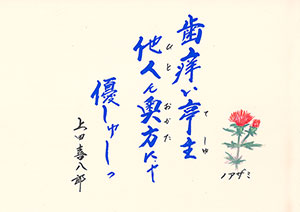 歯痒い亭主
てしゅ
他人ん奥方にゃ
ひと
優しゅしっ
上田喜八郎
ノアザミ